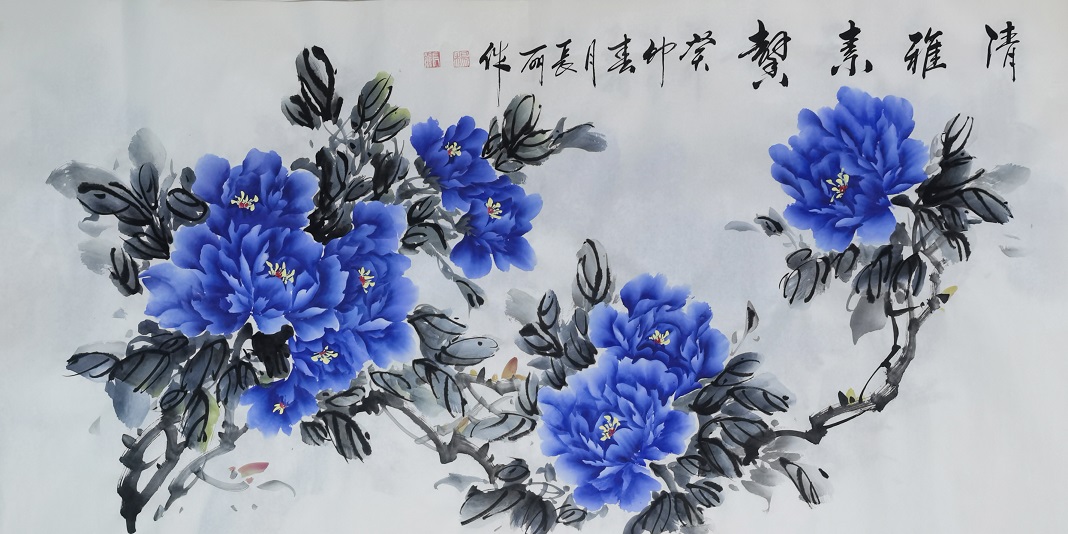 清雅素馨 癸卯春月長丽作